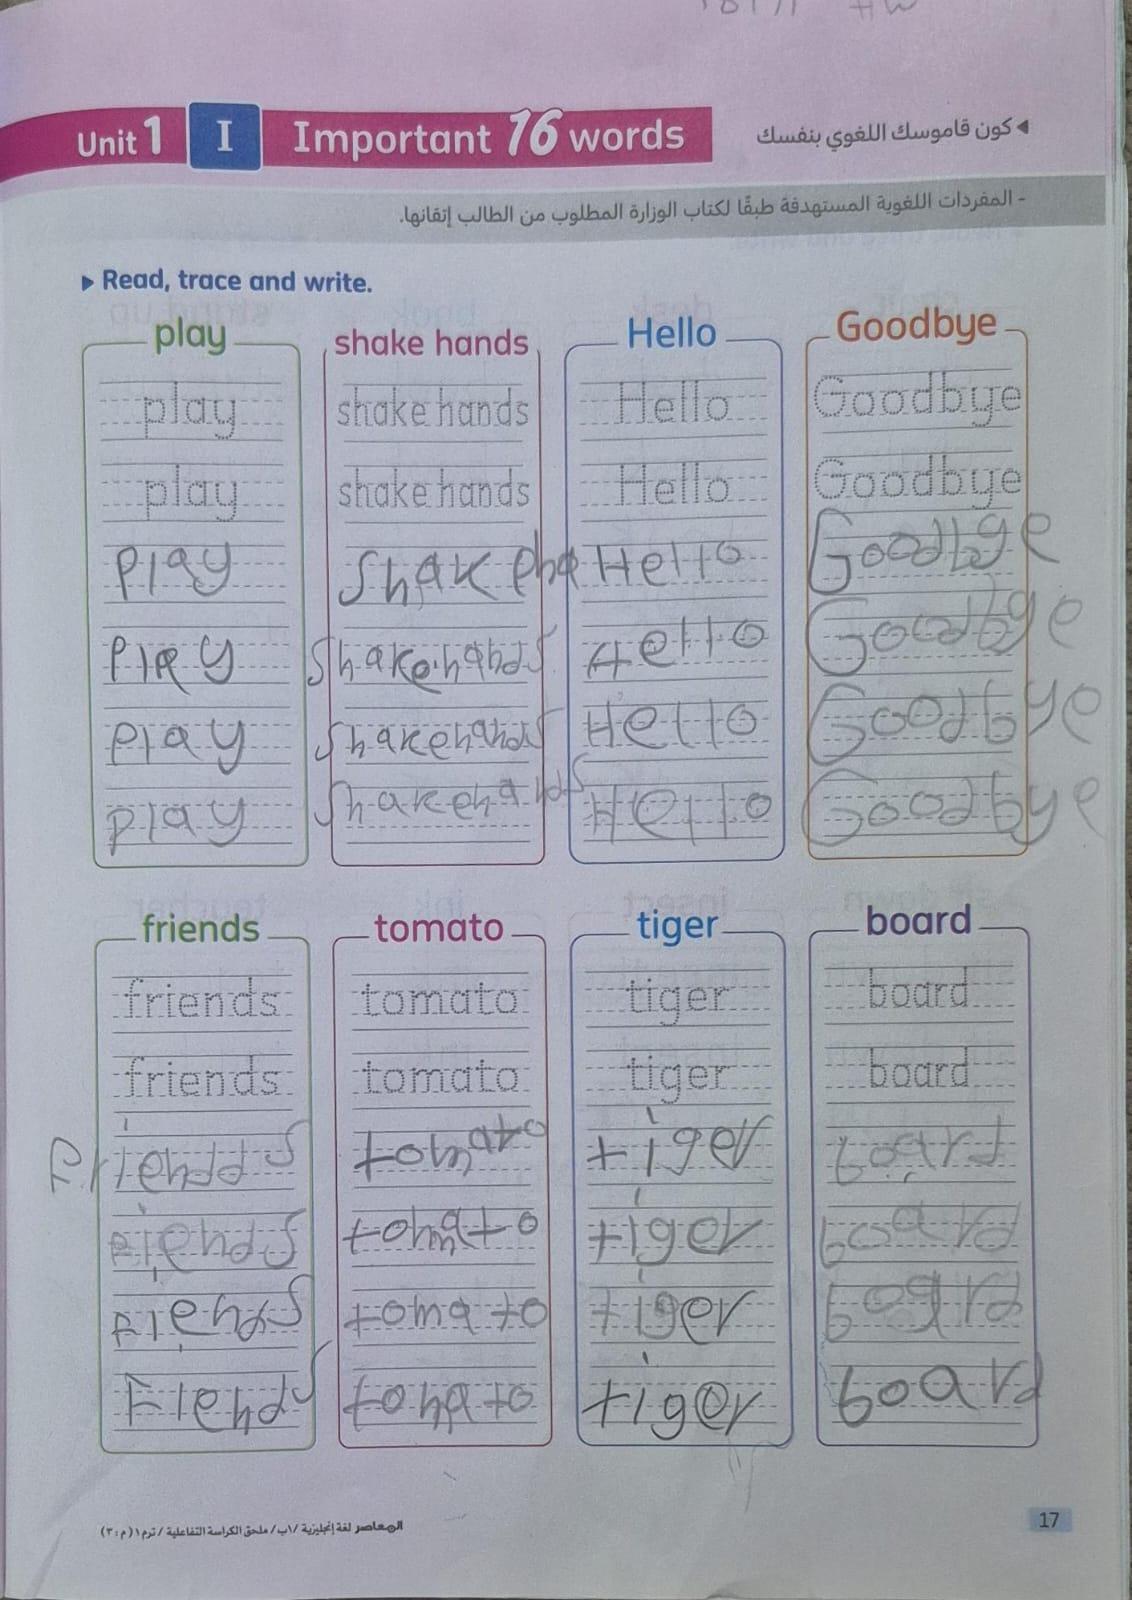 HW
Unit 1 I Important 16 words
كون قاموسك اللغوي بنفسك
- المفردات اللغوية المستهدفة طبقًا لكتاب الوزارة المطلوب من الطالب إتقانها.
Read, trace and write.
play shake hands Hello Goodbye
play shake hands Hello Goodbye
play shake hands Hello Goodbye
play shakeha Hello Goodbye
play shakehands Hello Goodbye
play shakehands Hello Goodbye
play shakehands Hello Goodbye
friends tomato tiger board
friends tomato tiger board
friends tomato tiger board
tomato tiger board
tomato tiger board
tomato tiger board
Fiends tomato tiger board
المعاصر لغة إنجليزية /١ب/ ملحق الكراسة التفاعلية / ترم١ (م : ٣)
17